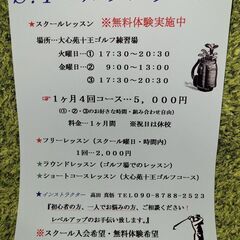 ★スクールレッスン ※無料体験実施中
場所…大心苑十王ゴルフ練習場
火曜日…③ 17:30～20:30
金曜日…① 9:00～13:00
② 17:30～20:30
☞1ヶ月4回コース…5,000円
(①・②・③のお好きな時間・組み合せ自由)
料金…1ヶ月間 ※祝日は休校
★フリーレッスン(スクール曜日・時間内)
1回…2,000円
★ラウンドレッスン(ゴルフ場でのレッスン)
★ショートコースレッスン(大心苑十王ゴルフコース)
★インストラクター 高田 真悟 TEL090-8788-2523
『初心者の方、一人でお悩みの方、ご相談ください!
レベルアップのお手伝い致します。』
※スクール入会希望・無料体験希望